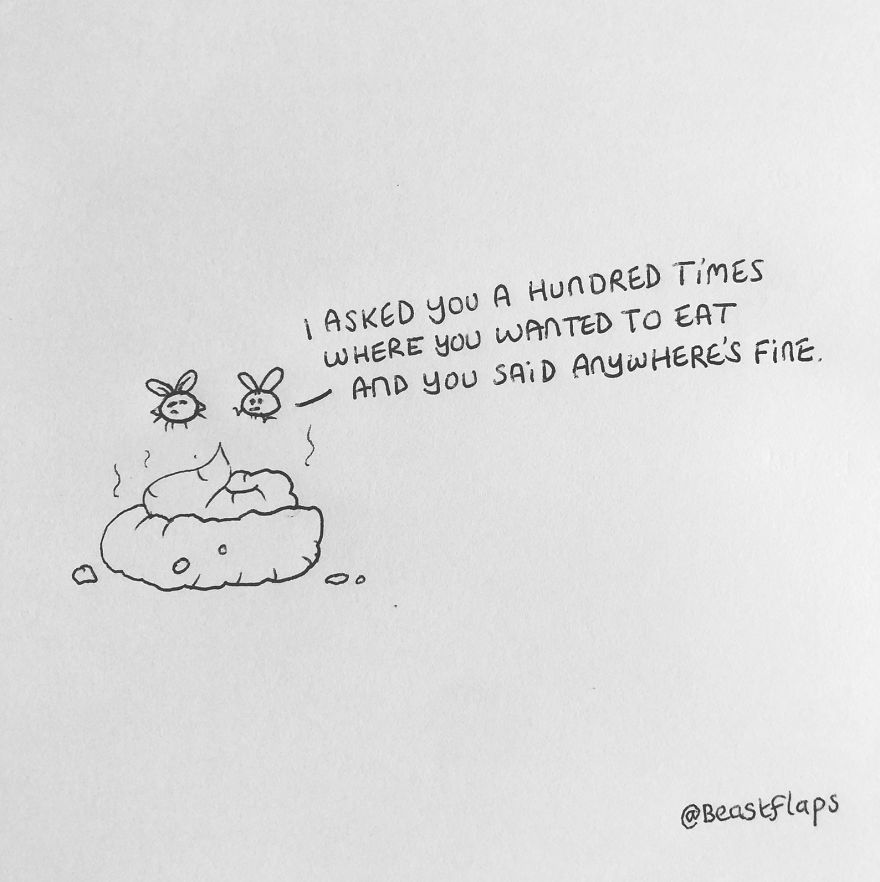 i ASKED YOU A HUNDRED TiMES
WHERE YOU WANTED TO EAT
AND YOU SAiD ANYWHERE'S FiNE.
@Beastflaps